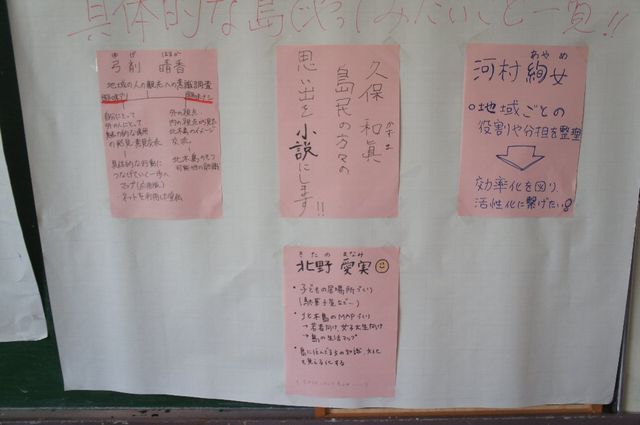 具体的な島でやってみたいこと一覧!!
ゆげ はるか
弓削 晴香
地域の人の観光への意識調査
自分にとって
外の人にとって
魅力的な場所
の発見・意見交換
具体的な行動に
つなげていく一歩へ
マップ(応用版)
ネットを利用した登録
外の視点
内の視点の見た
北木島のイメージ
交流
北木島のもつ
可能性の認識
久保 和眞
かずま
島民の方々の
思い出を小説にします!!
あやめ
河村絢女
・地域ごとの
役割や分担を整理
効率化を図り、
活性化に繋げたい
きたの まなみ
北野 愛実
・子どもの居場所づくり
(駄菓子屋など…)
・北木島のMAPづくり
→若者向け、女子大生向け
→島の生活マップ
・島に住んでる方の知識、文化
を見える化する